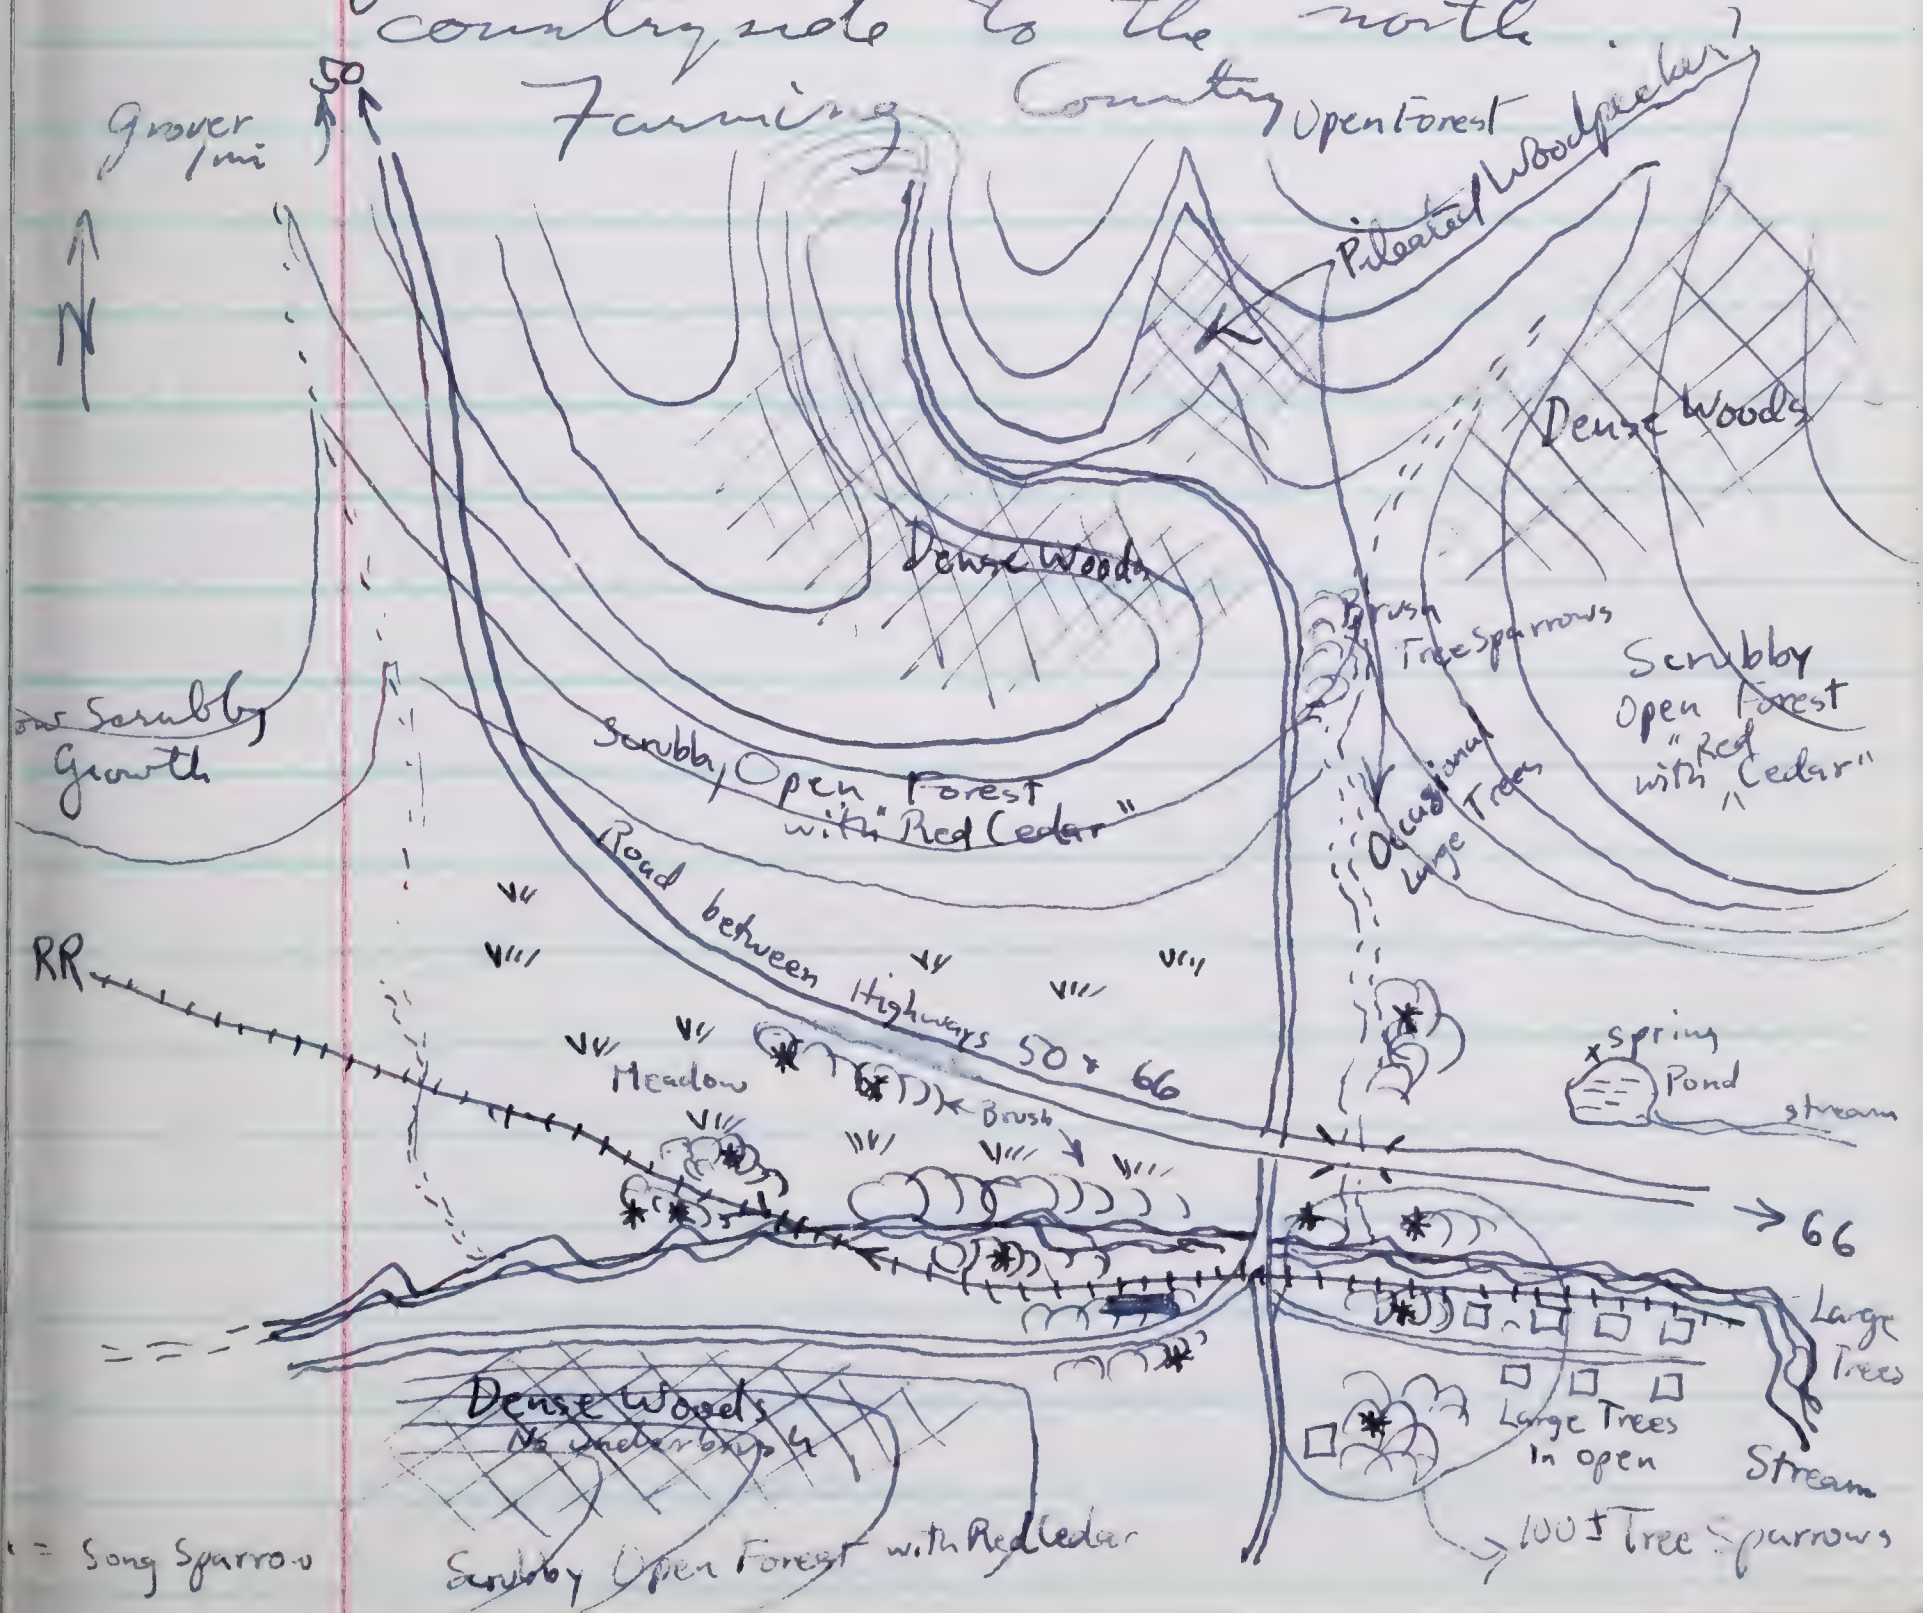 countryside to the north.
50
Farming Country
Grover
1 mi
Open Forest
Pileated Woodpecker
N
Dense Woods
Dense Woods
Brush
Tree Sparrows
Scrubby
Open Forest
with "Red Cedar"
Scrubby
Growth
Scrubby Open Forest
with "Red Cedar"
Occasional
Large Trees
Road between Highways 50 & 66
RR
Meadow
Brush
Spring
Pond
stream
66
Large
Trees
Dense Woods
No underbrush
Large Trees
In open
Stream
= Song Sparrow
Scrubby Open Forest with Red Cedar
100 ± Tree Sparrows